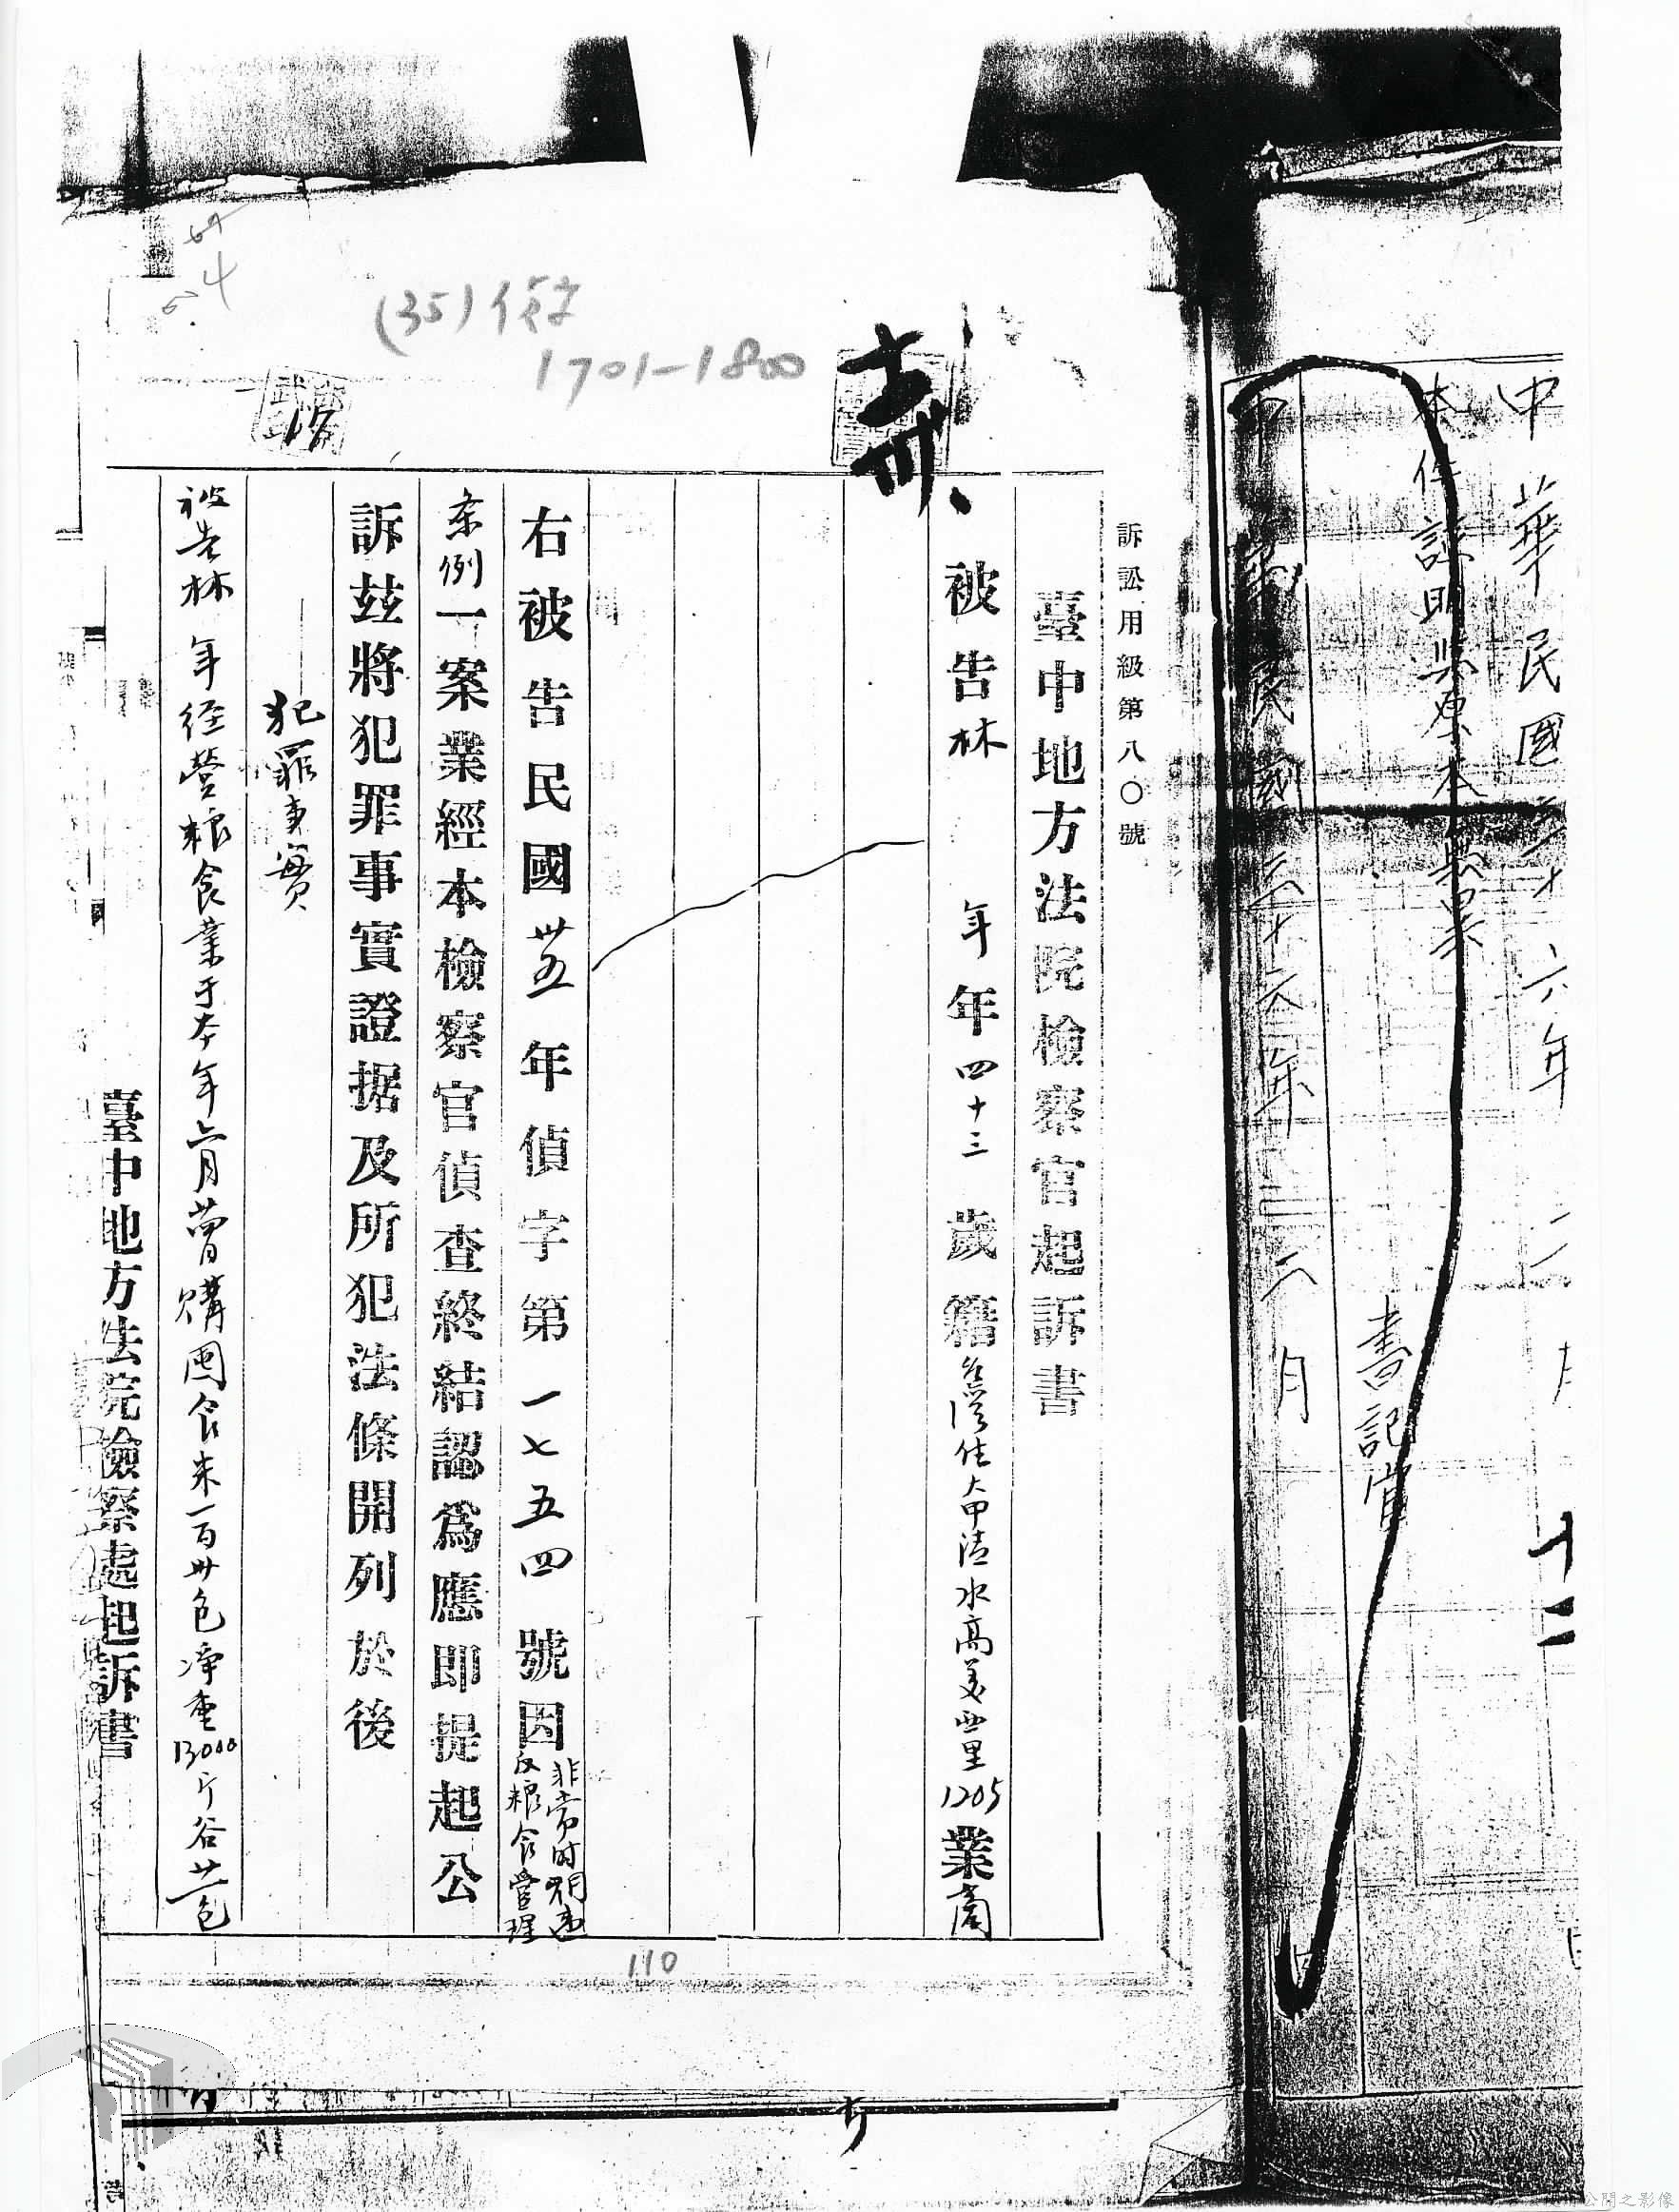 中華民國三十六年二月
十二
本件證明與原本無異
書記官
中華民國三十六年二月
日
訴訟用紙第八〇號
臺中地方法院檢察官起訴書
被告林 年 年四十三歲籍 住大甲清水高美西里1205業商
右被告民國卅五年偵字第一七五四號因非常時期違反粮食管理
条例一案業經本檢察官偵查終結認為應即提起公
訴茲將犯罪事實證据及所犯法條開列於後
犯罪事實
被告林 年経營粮食業于本年六月曾購囤食米一百卅包淨重13000斤谷廿包
臺中地方法院檢察處起訴書
(35)偵
1701-1800
110